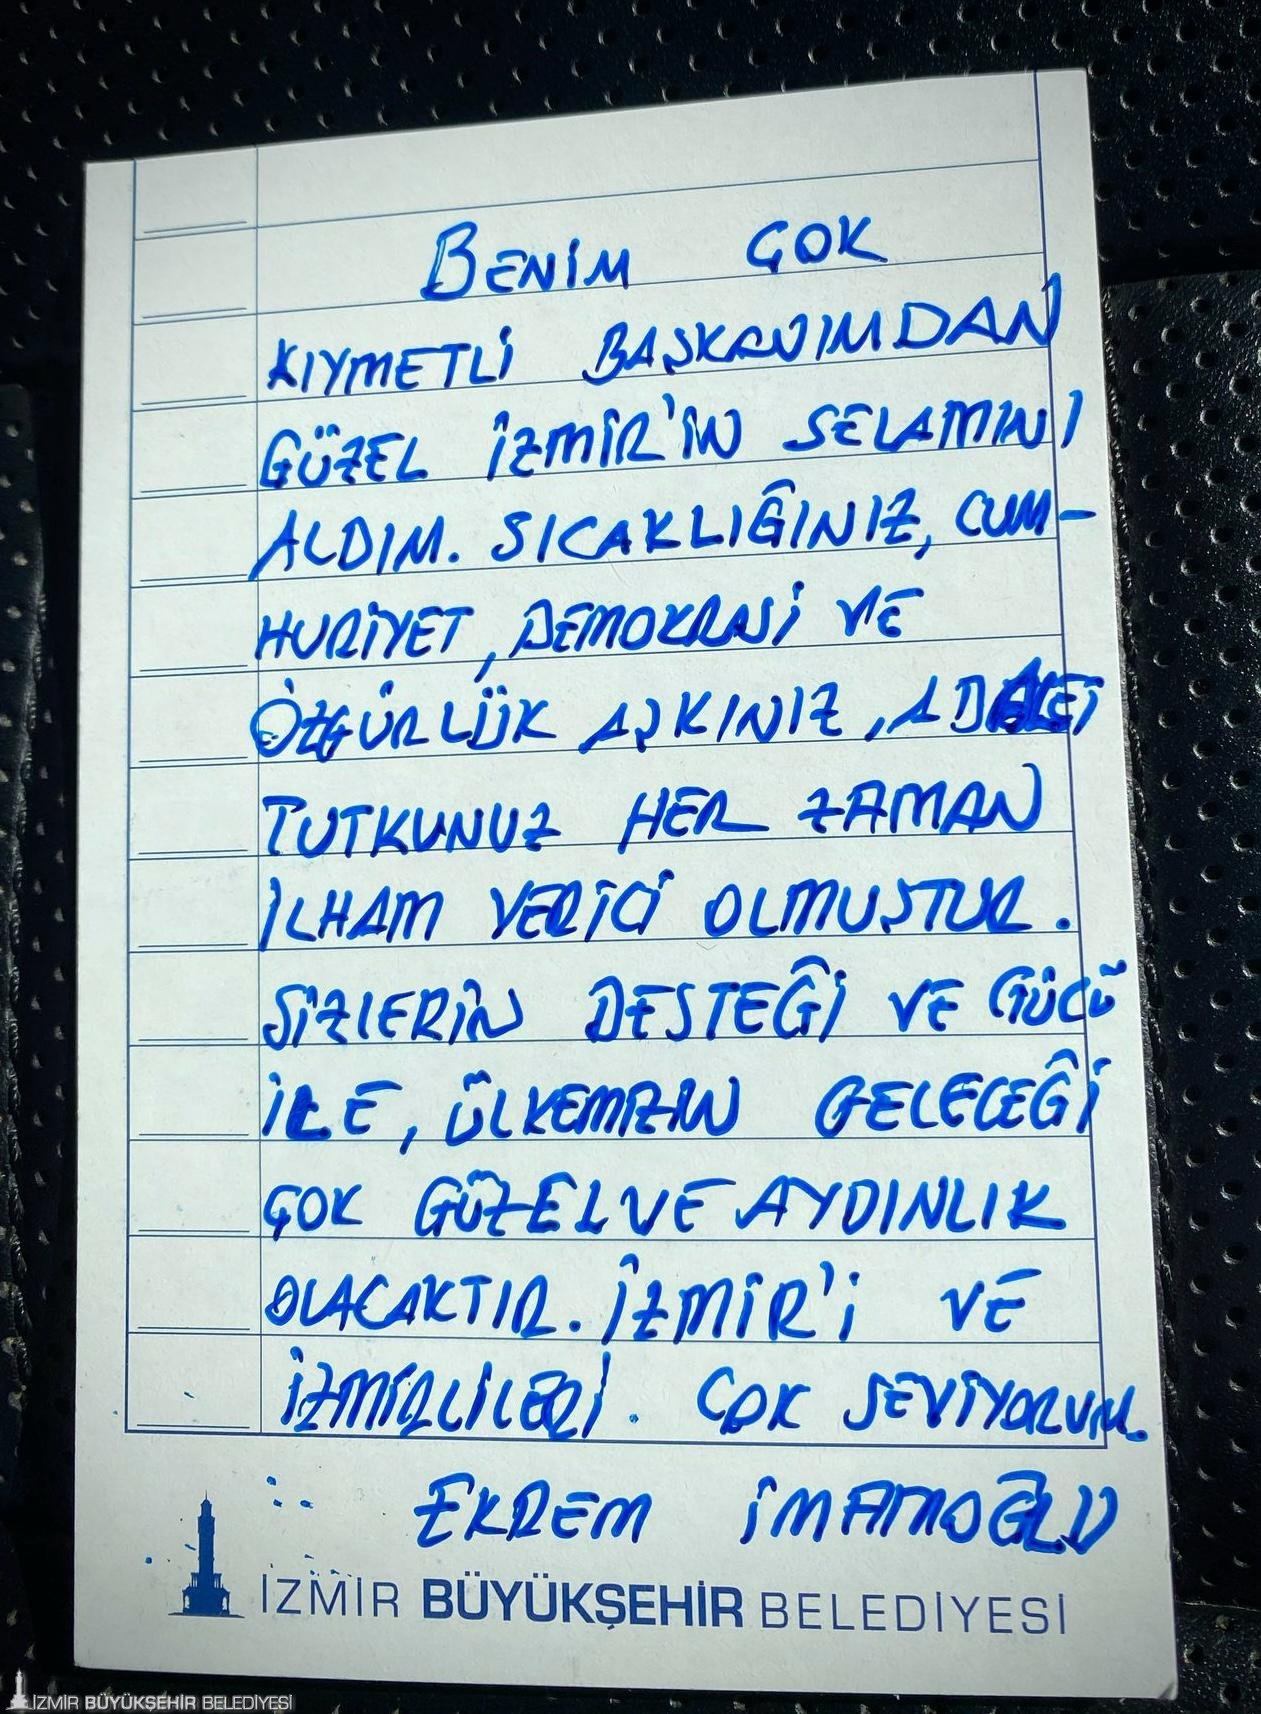 BENİM ÇOK
KIYMETLİ BAŞKANIMDAN
GÜZEL İZMİR'İN SELAMINI
ALDIM. SICAKLIĞINIZ, CUM-
HURİYET, DEMOKRASİ VE
ÖZGÜRLÜK AŞKINIZ, ADALET
TUTKUNUZ HER ZAMAN
İLHAM VERİCİ OLMUŞTUR.
SİZLERİN DESTEĞİ VE GÜCÜ
İLE, ÜLKEMİZİN GELECEĞİ
ÇOK GÜZEL VE AYDINLIK
OLACAKTIR. İZMİR'İ VE
İZMİRLİLERİ. ÇOK SEVİYORUM.
EKREM İMAMOĞLU
İZMİR BÜYÜKŞEHİR BELEDİYESİ
İZMİR BÜYÜKŞEHİR BELEDİYESİ